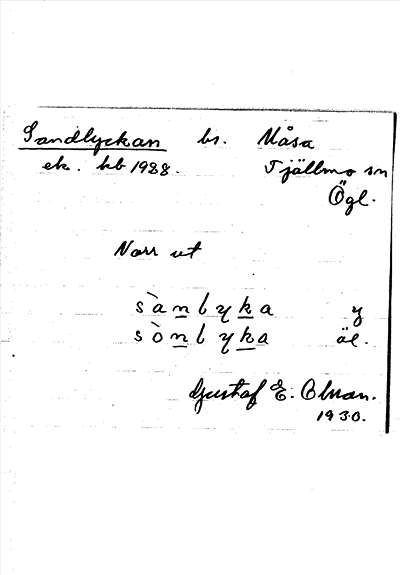 Sandlyckan bs. Måsa
ek. kb 1988. Tjällmo sn
Ögl.
Norr ut
sànlyka y
sònlyka äl.
Gustaf E. Olman.
1930.